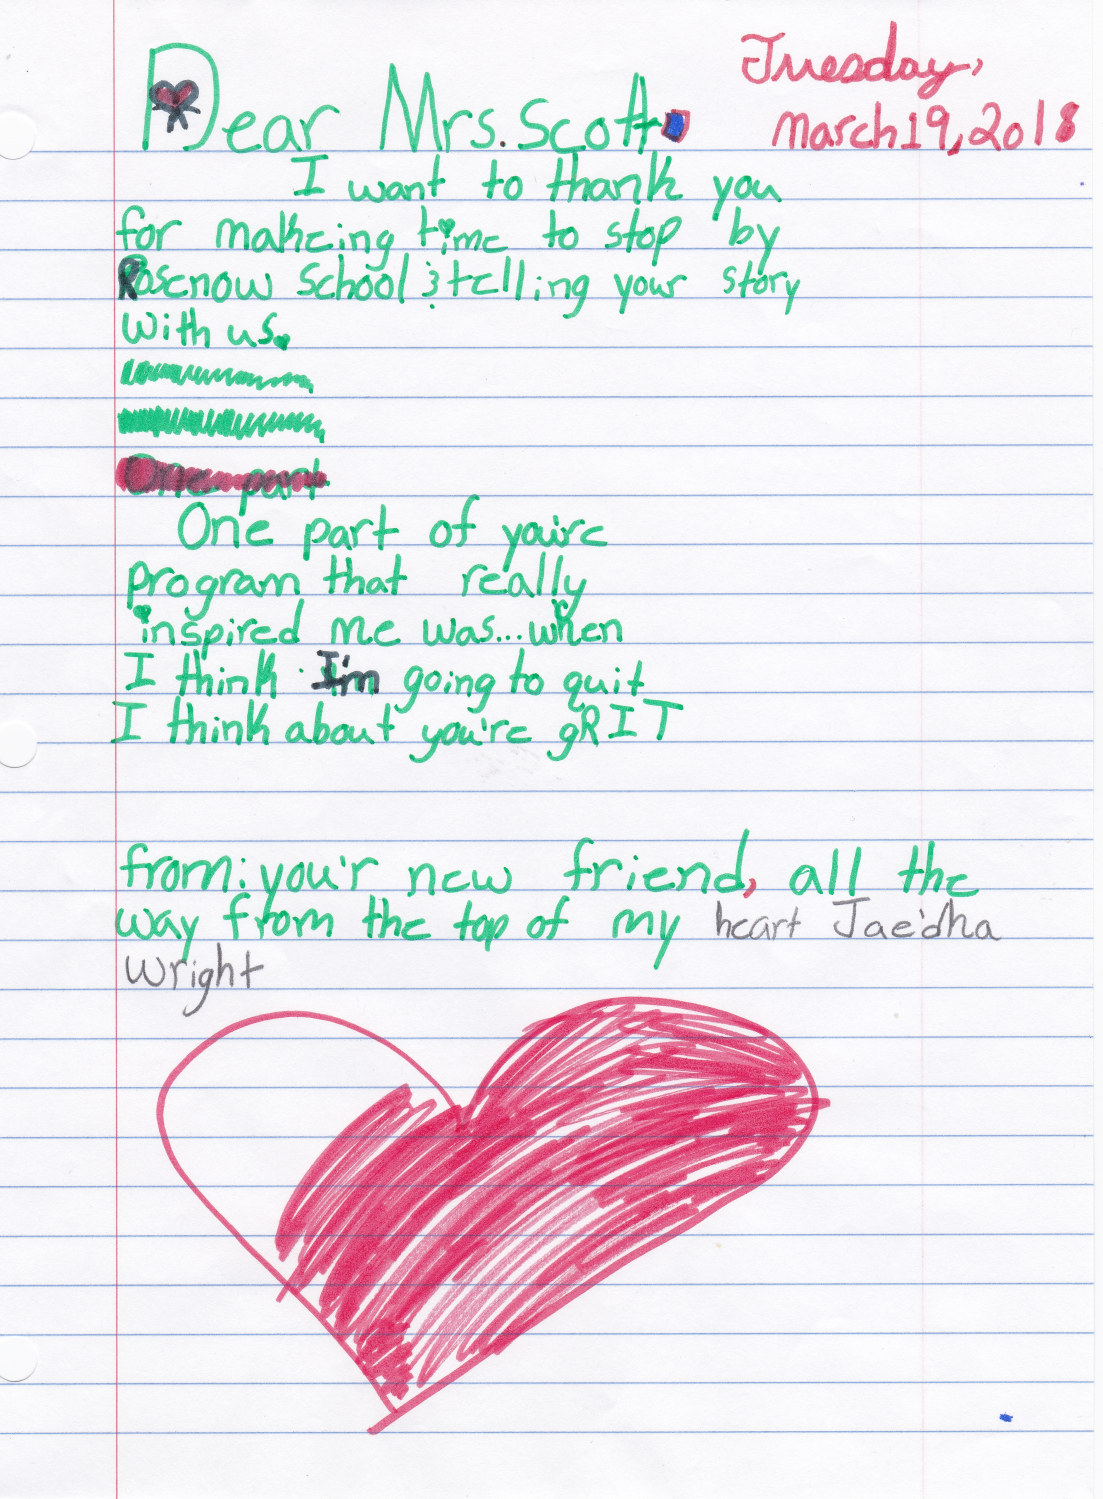 Tuesday,
March 19, 2018
Dear Mrs. Scott
I want to thank you
for makeing time to stop by
Rosenow School & telling your story
with us.
One part
One part of you're
program that really
inspired me was... when
I think I'm going to quit
I think about you're gRIT
from: you'r new friend, all the
way from the top of my heart Jae'dha
Wright